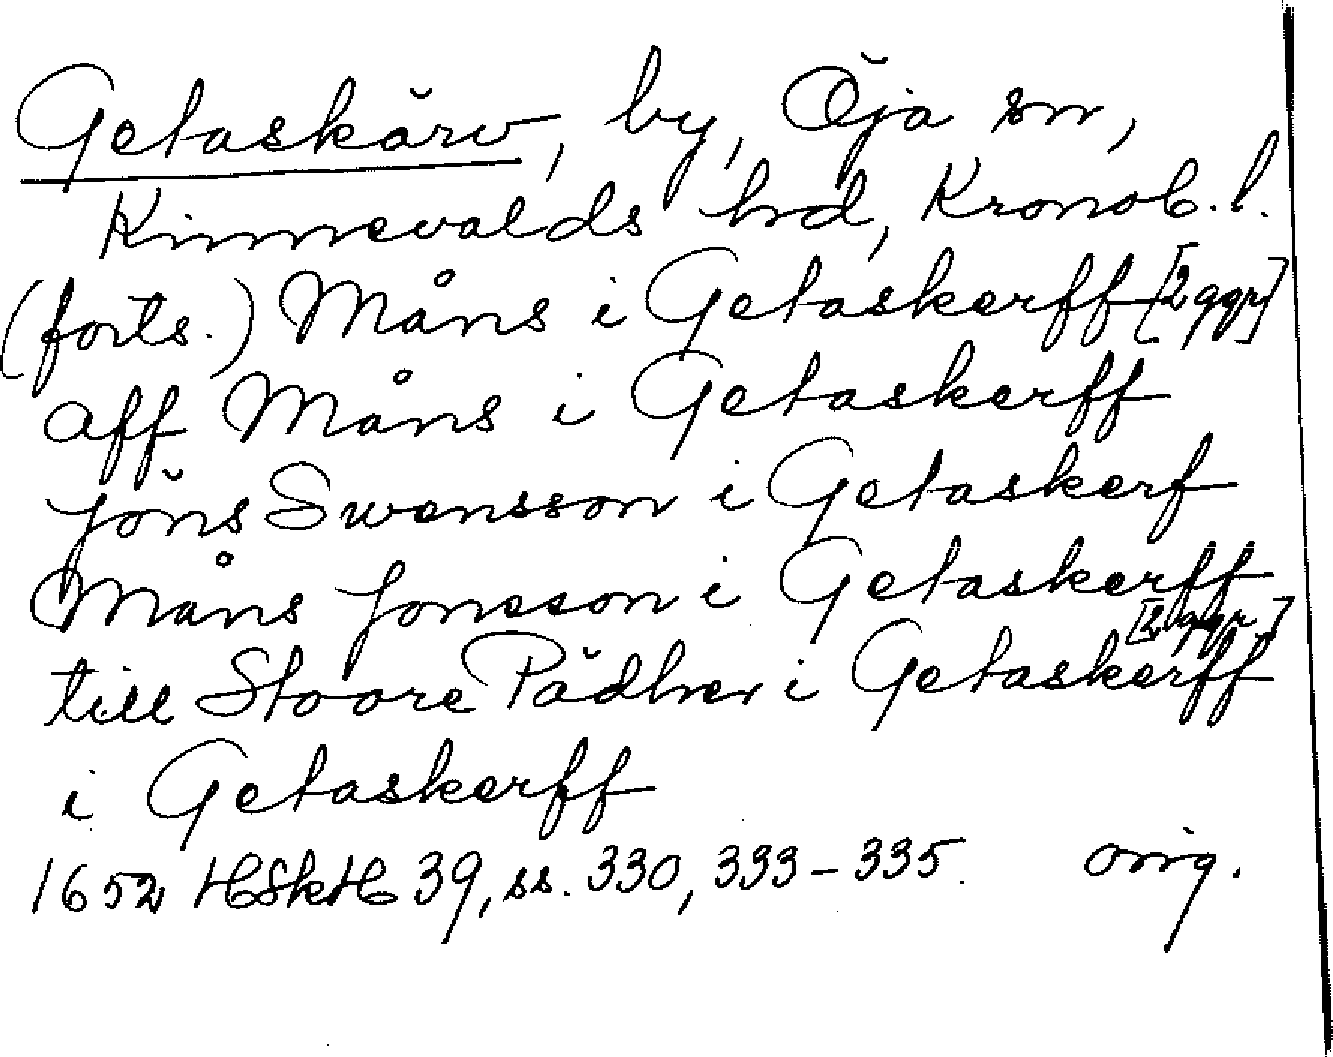 Getaskärv, by, Öja sn,
Kinnevalds hrd, Kronob. l.
(forts.) Måns i Getaskerff [2 ggr]
aff Måns i Getaskerff
Jöns Swensson i Getaskerf
Måns Jonsson i Getaskerff
[2 ggr]
till Stoore Pädher i Getaskerff
i Getaskerff
1652 HSkH 39, ss. 330, 333-335. orig.